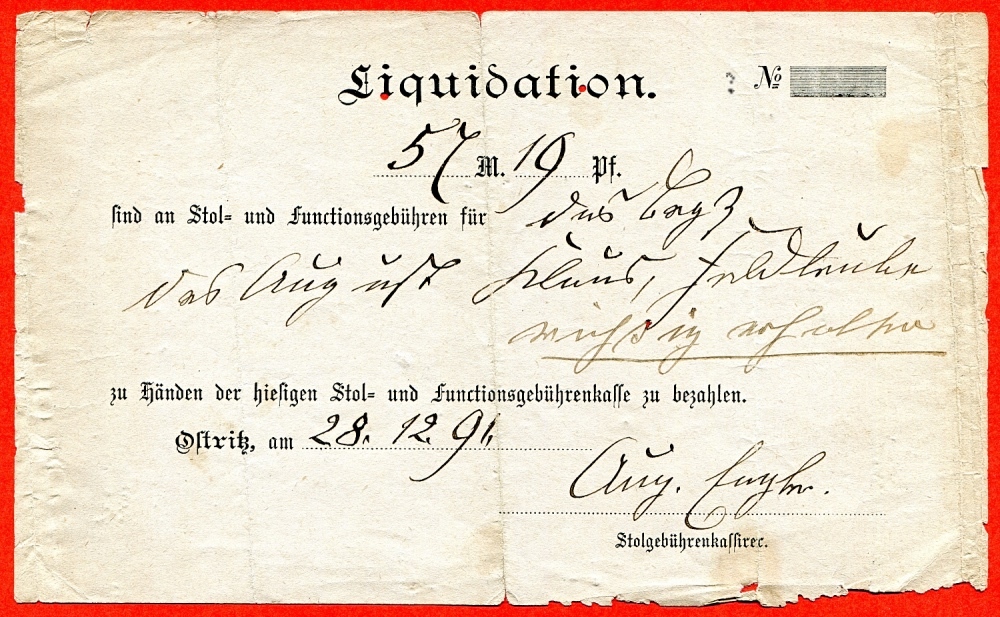 Liquidation. No
57 M. 19 Pf.
sind an Stol- und Functionsgebühren für das
des August Klaus,
richtig erhalten
zu Händen der hiesigen Stol- und Functionsgebührenkasse zu bezahlen.
Ostritz, am 28. 12. 91.
Aug.
Stolgebührenkassirec.